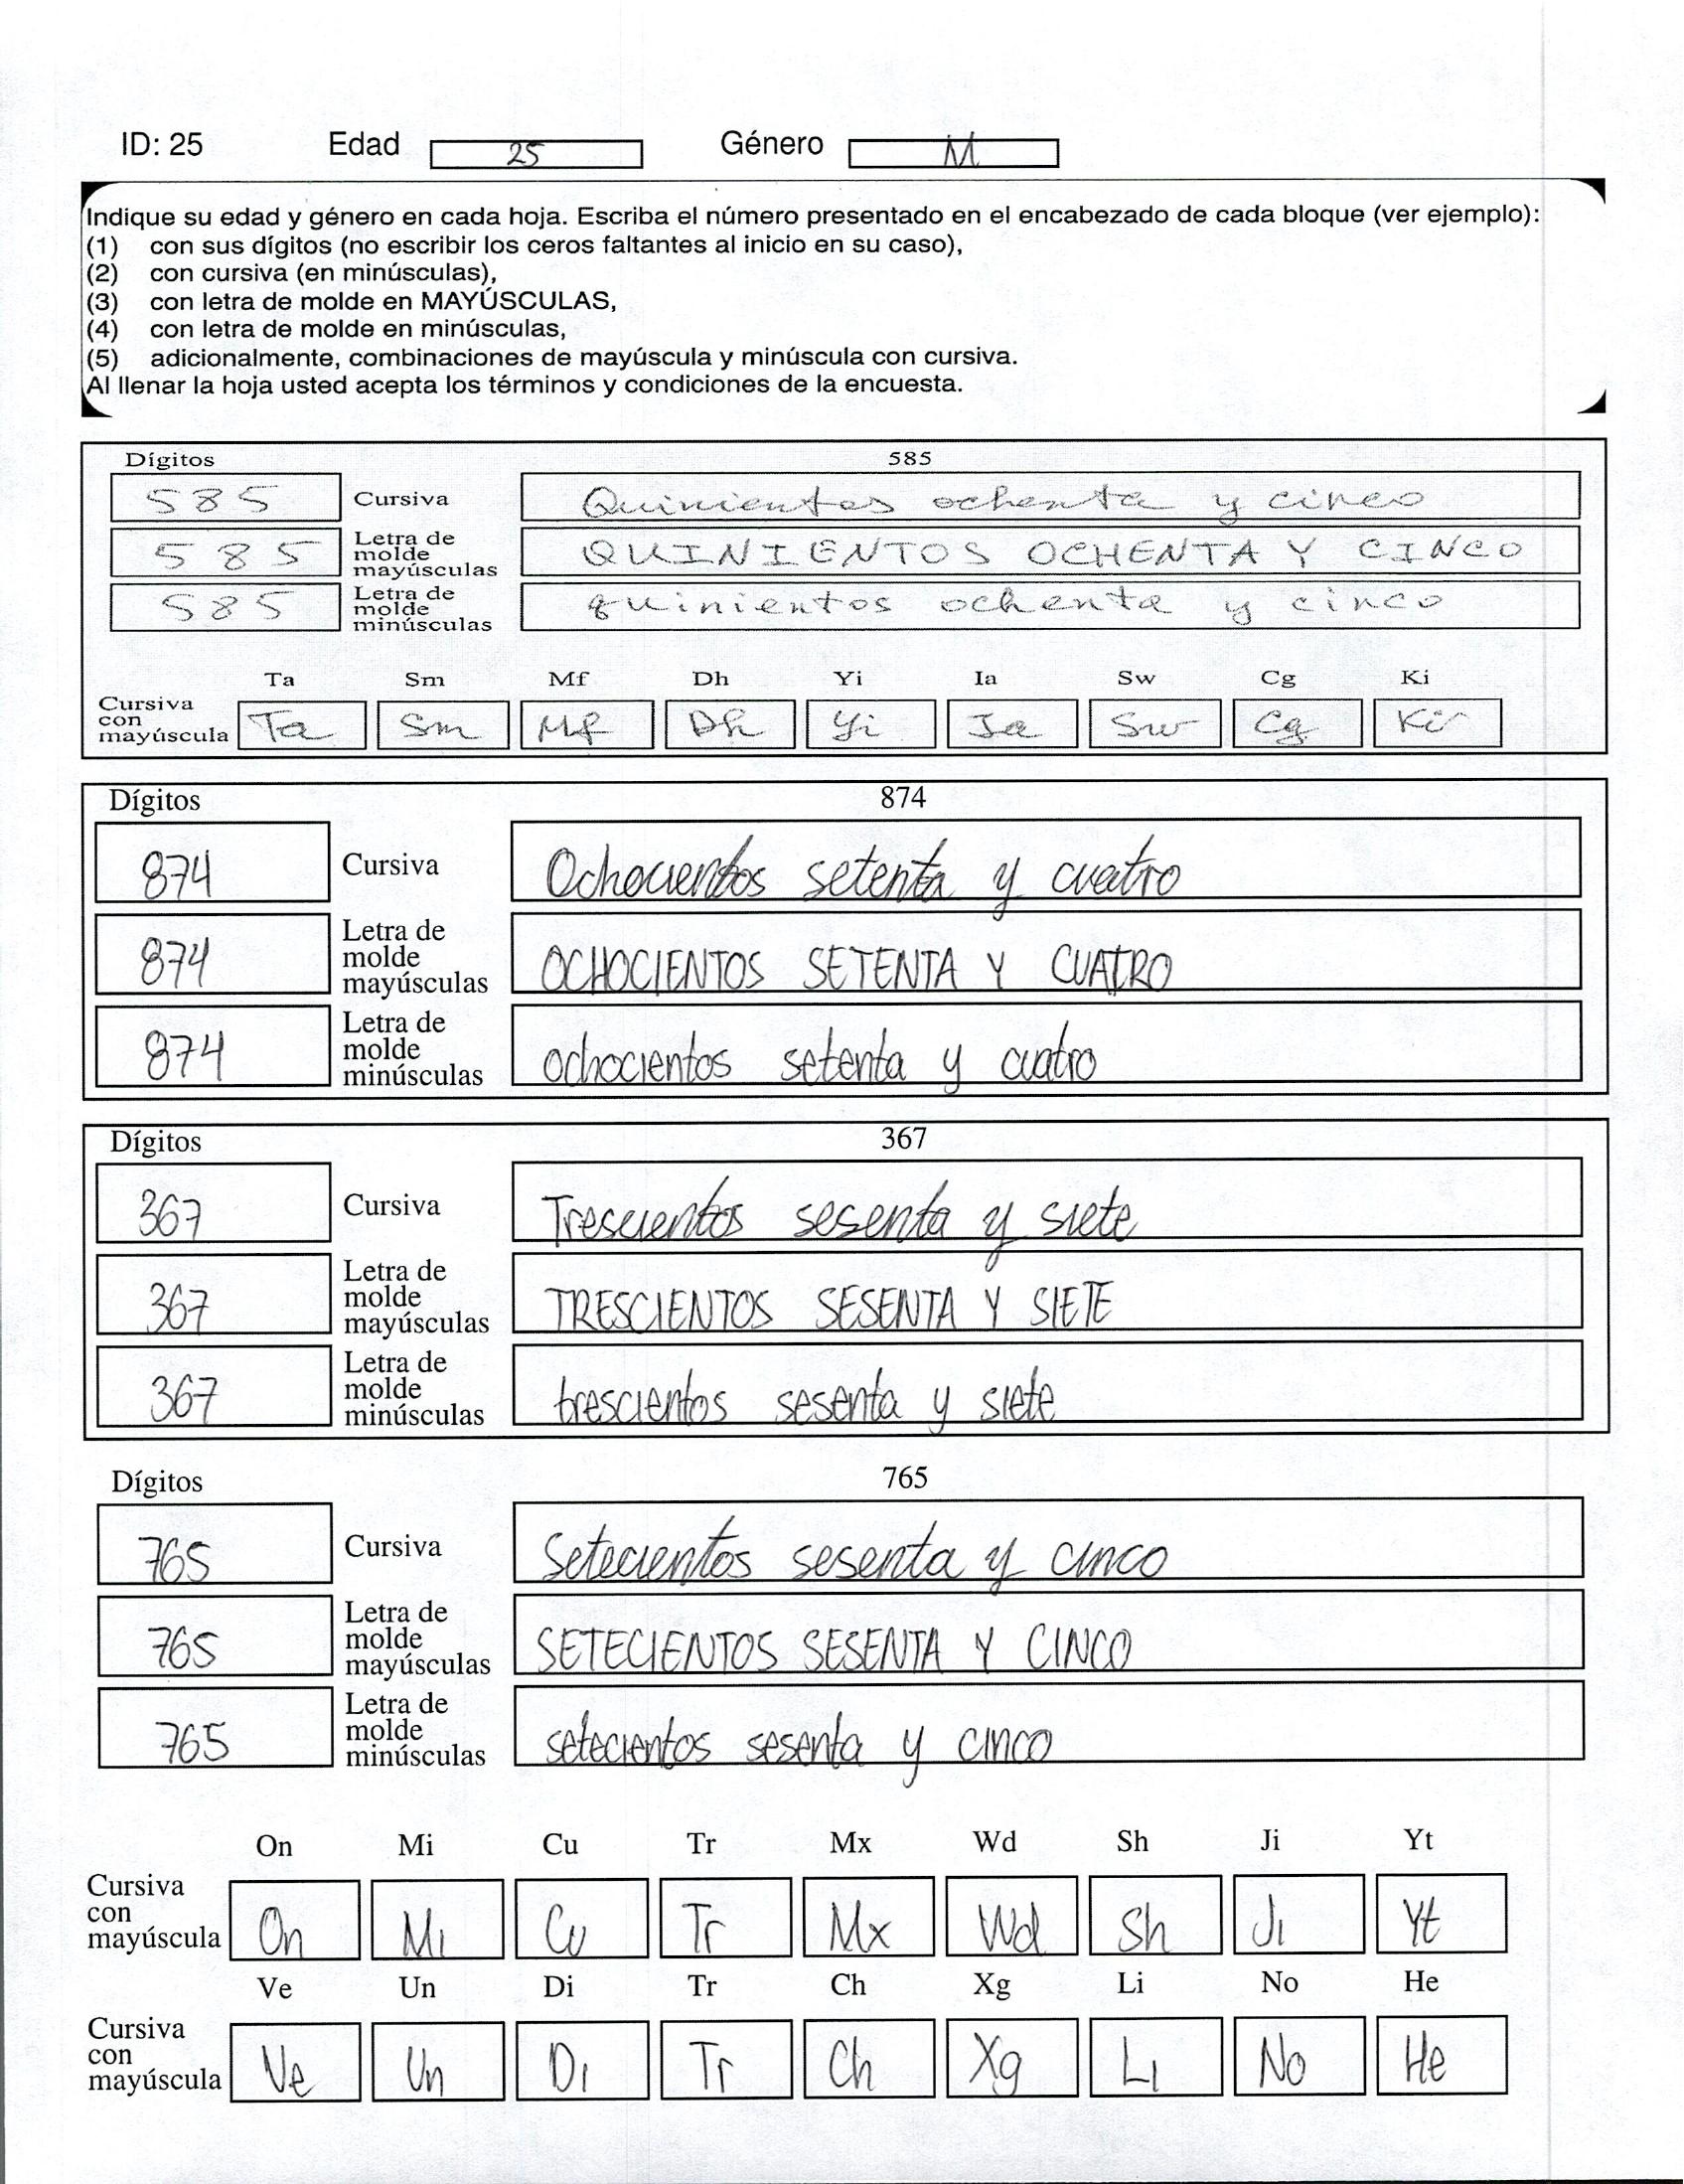 ID: 25 Edad 25 Género M
Indique su edad y género en cada hoja. Escriba el número presentado en el encabezado de cada bloque (ver ejemplo):
(1) con sus dígitos (no escribir los ceros faltantes al inicio en su caso),
(2) con cursiva (en minúsculas),
(3) con letra de molde en MAYÚSCULAS,
(4) con letra de molde en minúsculas,
(5) adicionalmente, combinaciones de mayúscula y minúscula con cursiva.
Al llenar la hoja usted acepta los términos y condiciones de la encuesta.
Dígitos 585
585 Cursiva Quinientos ochenta y cinco
585 Letra de molde mayúsculas QUINIENTOS OCHENTA Y CINCO
585 Letra de molde minúsculas quinientos ochenta y cinco
Ta Sm Mf Dh Yi Ia Sw Cg Ki
Cursiva con mayúscula Ta Sm Mf Dh Yi Ia Sw Cg Ki
Dígitos 874
874 Cursiva Ochocientos setenta y cuatro
874 Letra de molde mayúsculas OCHOCIENTOS SETENTA Y CUATRO
874 Letra de molde minúsculas ochocientos setenta y cuatro
Dígitos 367
367 Cursiva Trescientos sesenta y siete
367 Letra de molde mayúsculas TRESCIENTOS SESENTA Y SIETE
367 Letra de molde minúsculas trescientos sesenta y siete
Dígitos 765
765 Cursiva Setecientos sesenta y cinco
765 Letra de molde mayúsculas SETECIENTOS SESENTA Y CINCO
765 Letra de molde minúsculas setecientos sesenta y cinco
On Mi Cu Tr Mx Wd Sh Ji Yt
Cursiva con mayúscula On Mi Cu Tr Mx Wd Sh Ji Yt
Ve Un Di Tr Ch Xg Li No He
Cursiva con mayúscula Ve Un Di Tr Ch Xg Li No He